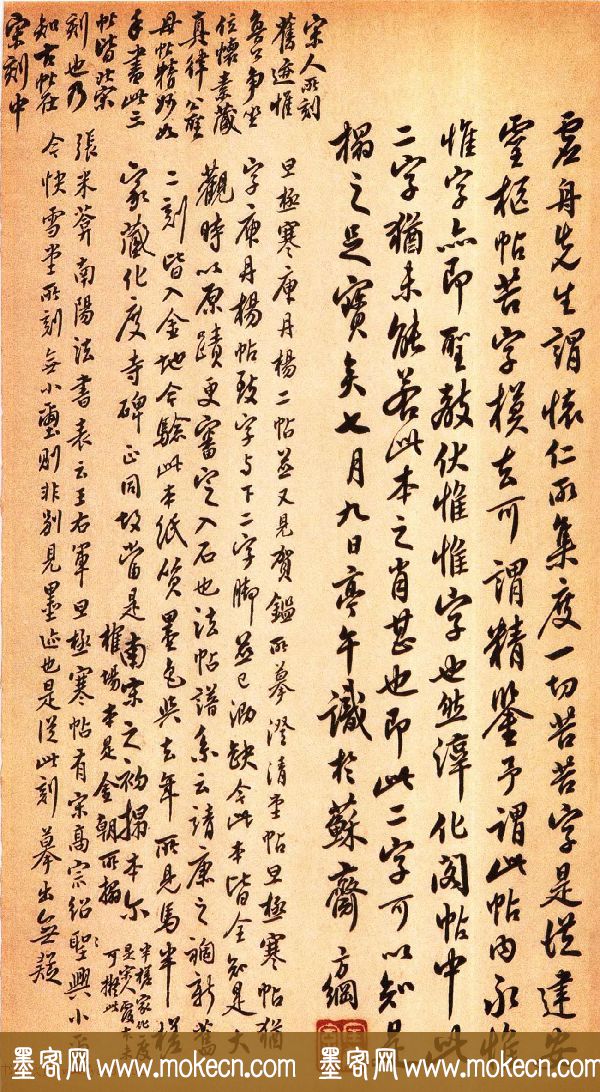 虛舟先生謂懷仁所集度一切苦苦字是從建安
靈柩帖苦字模去可謂精鑒予謂此帖内永惟
惟字亦即聖教伏惟惟字也然淳化閣帖中此
二字猶未能若此本之肖甚也即此二字可以知是
搨之足寶矣七月九日亭午識於蘇齋 方綱
旦極寒庚丹楊二帖並又見賀鑑所摹澄清堂帖旦極寒帖猶
字庚丹楊帖致字与下二字脚並已泐缺今此本皆全知是大
觀時以原蹟更審定入石也法帖譜系云靖康之禍新舊
二刻皆入金地今驗此本紙質墨色與去年所見馬半槎
家藏化度寺碑正同故當是南宋之初搨本尔
榷場本是金朝所搨
半槎家化度
可推此
張米菴南陽法書表云王右軍旦極寒帖有宋高宗紹聖興小
今快雪堂所刻無小璽則非别見墨迹也是從此刻摹出無疑
宋人所刻
舊迹惟
魯公争坐
位懷素藏
真律公聖
母帖精妙如
手書此三
帖皆北宋
刻也乃
知古帖在
宋刻中
墨客网 www.mokecn.com 墨客网 www.mokecn.com